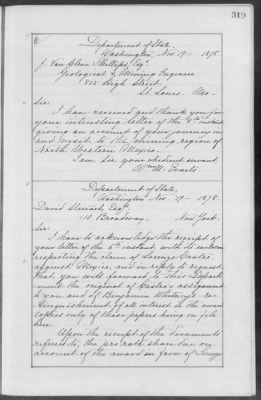 319
Department of State,
Washington, Nov. 19 — 1878.
J. Van Cleve Phillips, Esqr.
Geological & Mining Engineer
815 High Street.
St. Louis. Mo —
Sir:
I have received and thank you for
your interesting letter of the 8th instant
giving an account of your journey in
and visit to the mining region of
North Western Mexico.
I am Sir, your obedient servant
Wm. M. Evarts.
Department of State,
Washington Nov. 19 — 1878.
David Stewart, Esqr.
110 Broadway. New York.
Sir:
I have to acknowledge the receipt of
your letter of the 8th instant, with its enclosure
respecting the claim of Lorenzo Castro,
against Mexico, and in reply to request
that you will forward to this Depart-
ment the original of Castro's assignment
to you and of Benjamin Whitney's re-
linquishment of all interest in the award
copies only of those papers being on file
here.
Upon the receipt of the documents
referred to, the pro rata share due on
account of the award in favor of Lorenzo